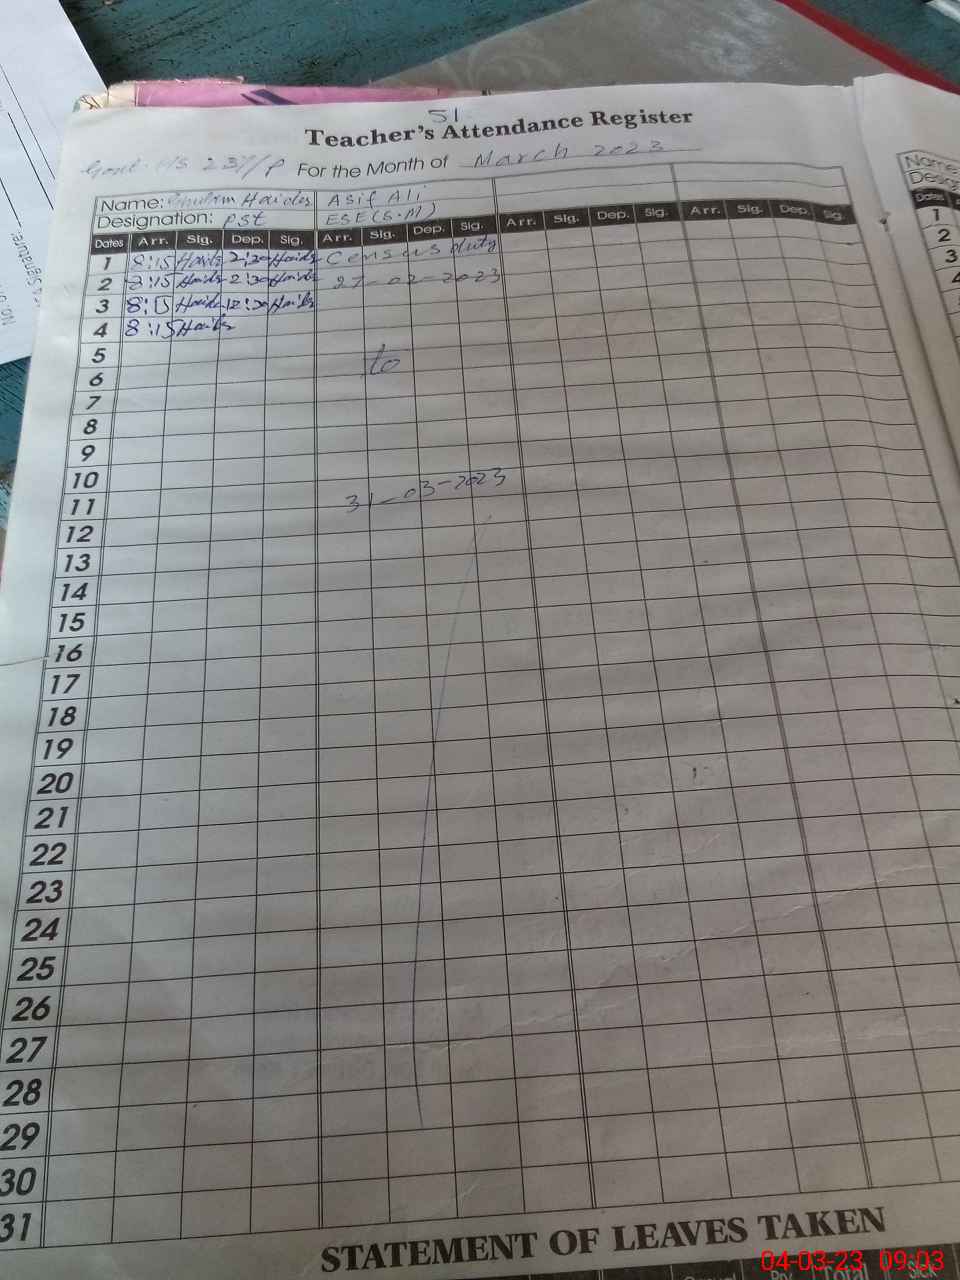 51
Teacher's Attendance Register
Govt. P/S 237/P For the Month of March 2023
Name: Ghulam Haider Asif Ali
Designation: PST ESE(S.M)
Dates Arr. Sig. Dep. Sig. Arr. Sig. Dep. Sig. Arr. Sig. Dep. Sig. Arr. Sig. Dep. Sig.
1 8:15 Haider 2:30 Haider Census duty
2 8:15 Haider 2:30 Haider 27-02-2023
3 8:15 Haider 12:30 Haider
4 8:15 Haider
5 to
6
7
8
9
10
11 31-03-2023
12
13
14
15
16
17
18
19
20
21
22
23
24
25
26
27
28
29
30
31
STATEMENT OF LEAVES TAKEN
Total Sick
04-03-23 09:03
Name
Desig
Dates
1
2
3
4